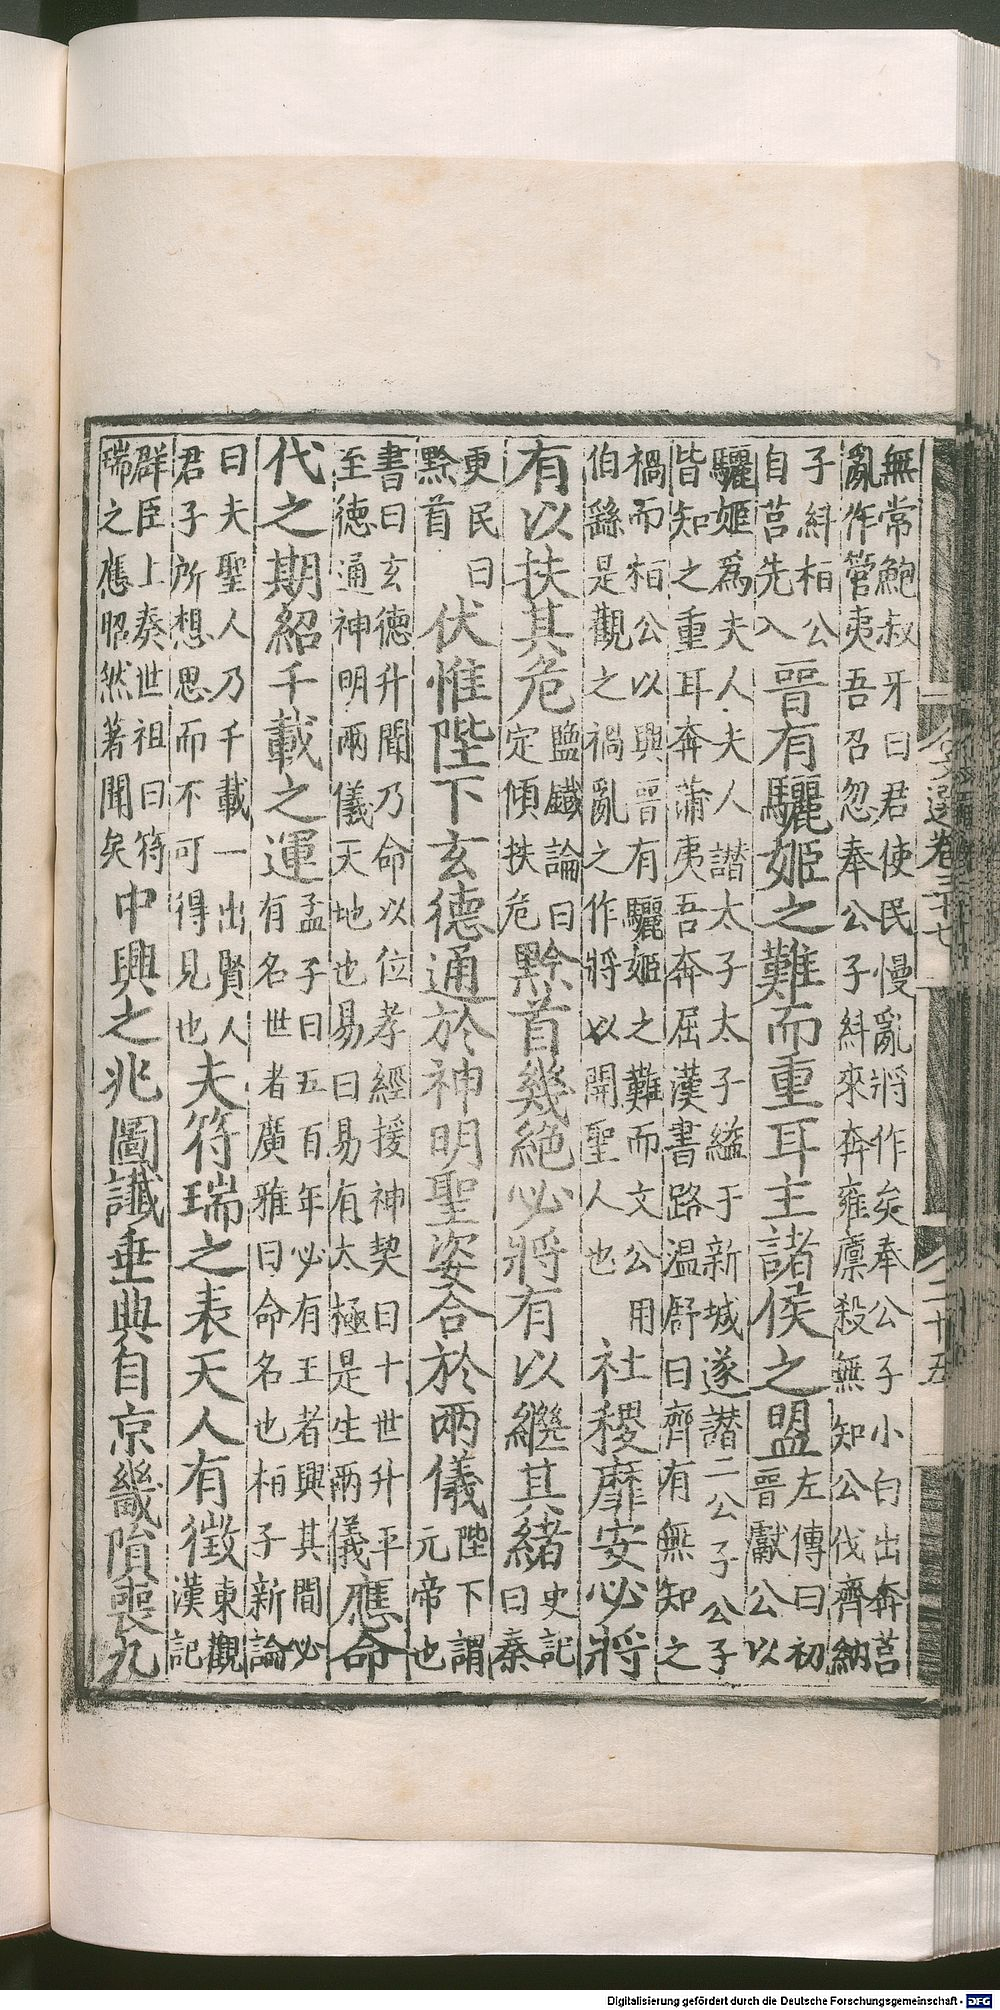 無常鮑叔牙曰君使民慢亂將作矣奉公子小白出奔莒
亂作管夷吾召忽奉公子糾來奔雍廩殺無知公伐齊納
子糾桓公
自莒先入
晉有驪姬之難而重耳主諸侯之盟
左傳曰初
晉獻公以
驪姬爲夫人夫人譖太子太子縊于新城遂譖二公子公子
皆知之重耳奔蒲夷吾奔屈漢書路温舒曰齊有無知之
禍而桓公以興晉有驪姬之難而文公用
伯繇是觀之禍亂之作將以開聖人也
社稷靡安必將
有以扶其危
鹽鐵論曰
定傾扶危
黔首幾絶必將有以繼其緒
史記
曰秦
更民曰
黔首
伏惟陛下玄德通於神明聖姿合於兩儀
陛下謂
元帝也
書曰玄德升聞乃命以位孝經援神契曰十世升平
至德通神明兩儀天地也易曰易有太極是生兩儀
應命
代之期紹千載之運
孟子曰五百年必有王者興其間必
有名世者廣雅曰命名也桓子新論
曰夫聖人乃千載一出賢人
君子所想思而不可得見也
夫符瑞之表天人有徵
東觀
漢記
群臣上奏世祖曰符
瑞之應昭然著聞矣
中興之兆圖讖垂典自京畿隕喪九
文選卷三十七
二十五
Digitalisierung gefördert durch die Deutsche Forschungsgemeinschaft - DFG